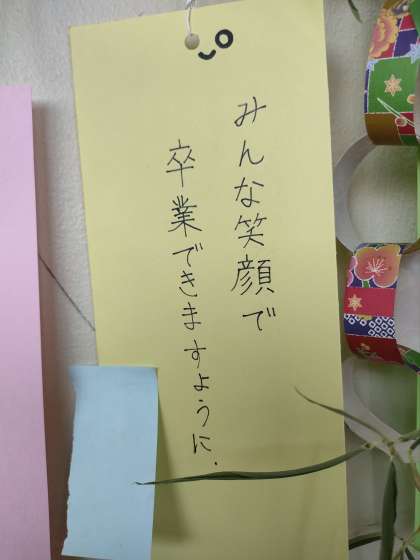 みんな笑顔で
卒業できますように.